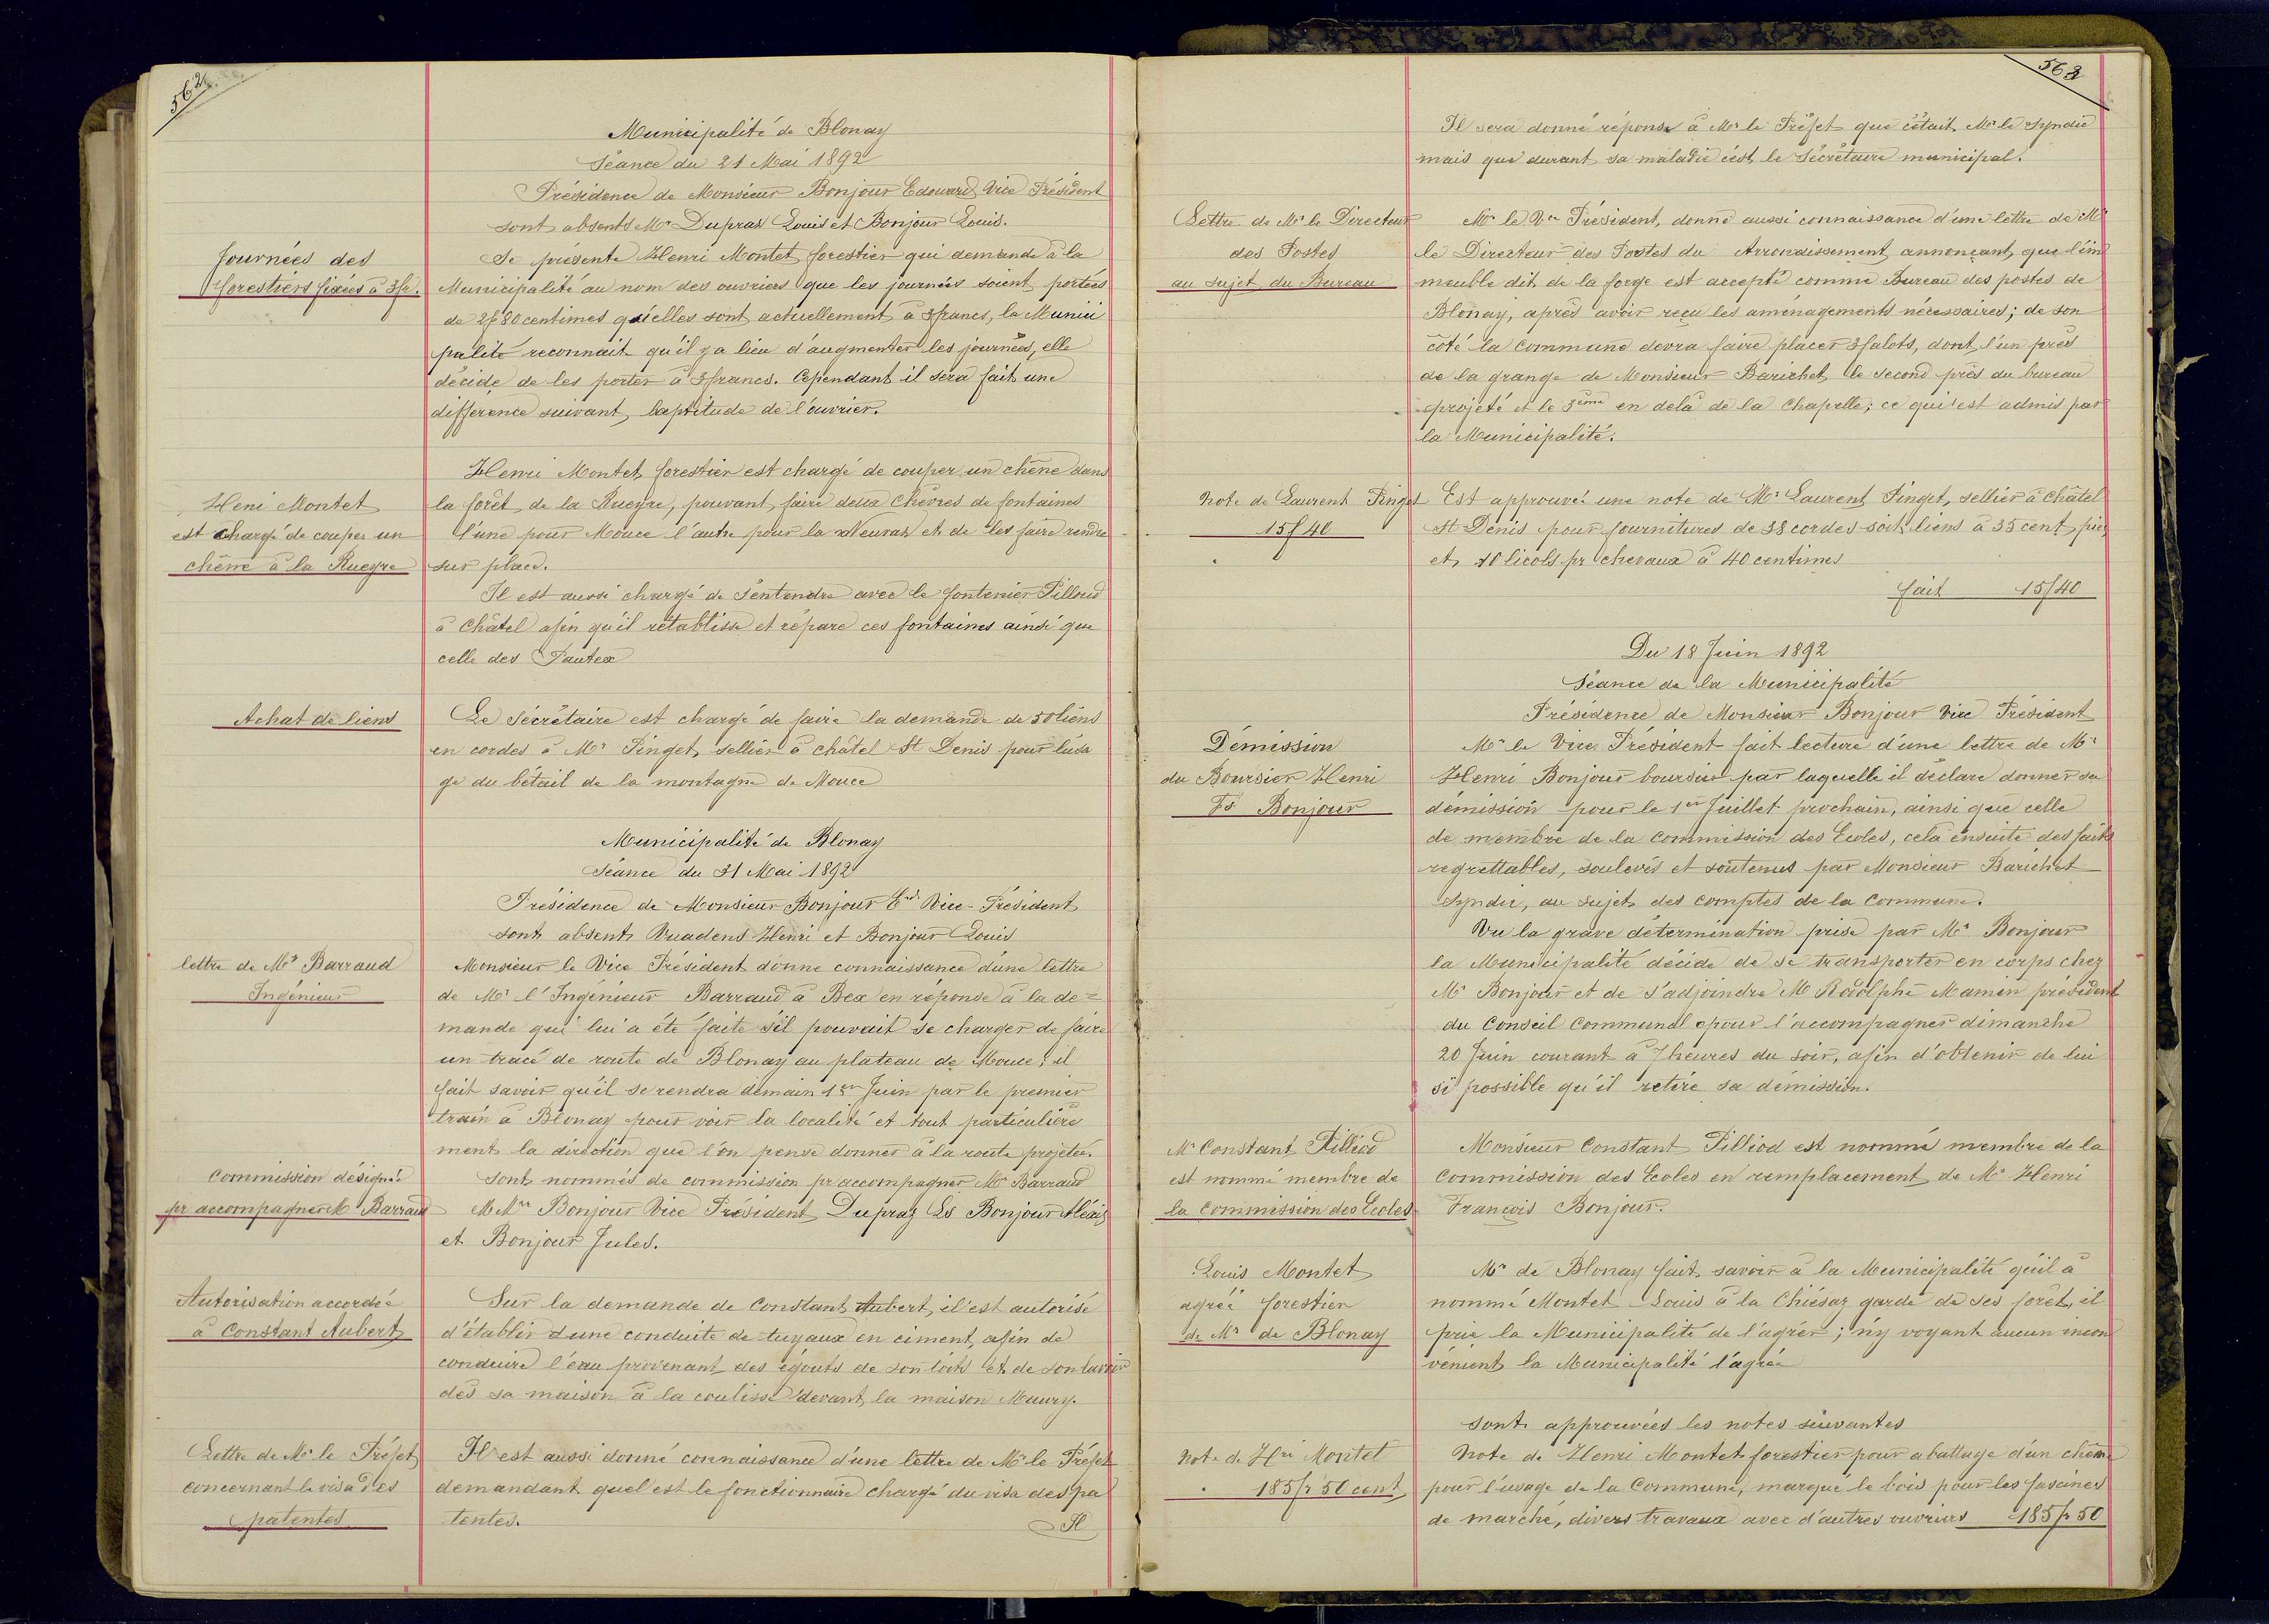 562
Municipalité de Blonay
Séance du 21 Mai 1892
Présidence de Monsieur Bonjour Edouard Vice Président
sont absents Mr Dupraz Louis et Bonjour Louis.
Journées des
forestiers fixées à 3 fr.
Se présente Henri Montet forestier qui demande à la
Municipalité au nom des ouvriers que les journées soient portées
de 2f 80 centimes qu'elles sont actuellement à 3 francs, la Munici
palité reconnait qu'il y a lieu d'augmenter les journées, elle
décide de les porter à 3 francs. Cependant il sera fait une
différence suivant l'aptitude de l'ouvrier.
Heni Montet
est chargé de couper un
chêne à la Rueyre
Henri Montet forestier est chargé de couper un chêne dans
la forêt de la Rueyre, pouvant faire deux chèvres de fontaines
l'une pour Mouce l'autre pour la Neuvaz et de les faire rendre
sur place.
Il est aussi chargé de s'entendre avec le fontenier Pilloud
à Châtel afin qu'il rétablisse et répare ces fontaines ainsi que
celle des Pautex
Achat de liens
Le Sécrétaire est chargé de faire la demande de 50 liens
en cordes à Mr Pinget, sellier à châtel St Denis pour l'usa
ge du bétail de la montagne de Mouce
Municipalité de Blonay
Séance du 31 Mai 1892
Présidence de Monsieur Bonjour Ed Vice-Président
sont absents Vuadens Henri et Bonjour Louis
lettre de Mr Barraud
Ingénieur
Monsieur le Vice Président donne connaissance d'une lettre
de Mr l'Ingénieur Barraud à Bex en réponse à la de=
mande qui lui a été faite s'il pouvait se charger de faire
un tracé de route de Blonay au plateau de Mouce; il
fait savoir qu'il se rendra demain 1er Juin par le premier
train à Blonay pour voir la localité et tout particulière
ment la direction que l'on pense donner à la route projetée.
Commission désignée
pr accompagner M Barraud
Sont nommés de commission pr accompagner Mr Barraud
M Mrs Bonjour Vice Président Dupraz Ls Bonjour Aléxis
et Bonjour Jules.
Autorisation accordée
à Constant Aubert
Sur la demande de Constant Aubert, il est autorisé
d'établir d'une conduite de tuyaux en ciment, afin de
conduire l'eau provenant des égouts de son toits et de son lavoir
dès sa maison à la coulisse devant la maison Maury.
Lettre de Mr le Préfet
concernant le visa des
patentes
Il est aussi donné connaissance d'une lettre de Mr le Préfet
demandant quel est le fonctionnaire chargé du visa des pa
tentes.
Il
563
Il sera donné réponse à Mr le Préfet que c'était Mr le Syndic
mais que durant sa maladie c'est le Sécrétaire municipal.
Lettre de Mr le Directeur
des Postes
au sujet du Bureau
Mr le Vce Président, donne aussi connaissance d'une lettre de Mr
le Directeur des Postes du Arrondissement annonçant, que l'im
meuble dit de la forge est accepté comme Bureau des postes de
Blonay, après avoir reçu les aménagements nécessaires; de son
côté la Commune devra faire placer 3 falots, dont l'un près
de la grange de Monsieur Barichet le second près du bureau
projeté et le 3ème en delà de la Chapelle; ce qui est admis par
la Municipalité.
Note de Laurent Pinget
15f 40
Est approuvée une note de Mr Laurent Pinget, sellier à Châtel
St Denis pour fournitures de 38 cordes soit liens à 35 cent pie,
et 10 licols pr chevaux à 40 centimes
fait 15f40
Du 18 Juin 1892
Séance de la Municipalité
Présidence de Monsieur Bonjour Vice Président
Démission
du Boursier Henri
Fs Bonjour
Mr le Vice Président fait lecture d'une lettre de Mr
Henri Bonjour boursier par laquelle il déclare donner sa
démission pour le 1er Juillet prochain, ainsi que celle
de membre de la Commission des Ecoles, cela ensuite des faits
regrettables, soulevés et soutenus par Monsieur Barichet
Syndic, au sujet des comptes de la Commune.
Vu la grave détermination prise par Mr Bonjour
la Municipalité décide de se transporter en corps chez
Mr Bonjour et de s'adjoindre M Rodolphe Mamin président
du Conseil Communal pour l'accompagner dimanche
20 Juin courant à 7 heures du soir, afin d'obtenir de lui
si possible qu'il retire sa démission.
Mr Constant Pilliod
est nommé membre de
la Commission des Ecoles
Monsieur Constant Pilliod est nommé membre de la
Commission des Ecoles en remplacement de Mr Henri
François Bonjour.
Louis Montet
agréé forestier
de Mr de Blonay
Mr de Blonay fait savoir à la Municipalité qu'il à
nommé Montet Louis à la Chiésaz garde de ses forêt, il
prie la Municipalité de l'agréer; n'y voyant aucun incon
vénient la Municipalité l'agrée
Sont approuvées les notes suivantes
Note de Hri Montet
185 fr 50 cent
Note de Henri Montet forestier pour abattage d'un chêne
pour l'usage de la Commune, marqué le bois pour les fascines
de marché, divers travaux avec d'autres ouvriers 185 fr 50